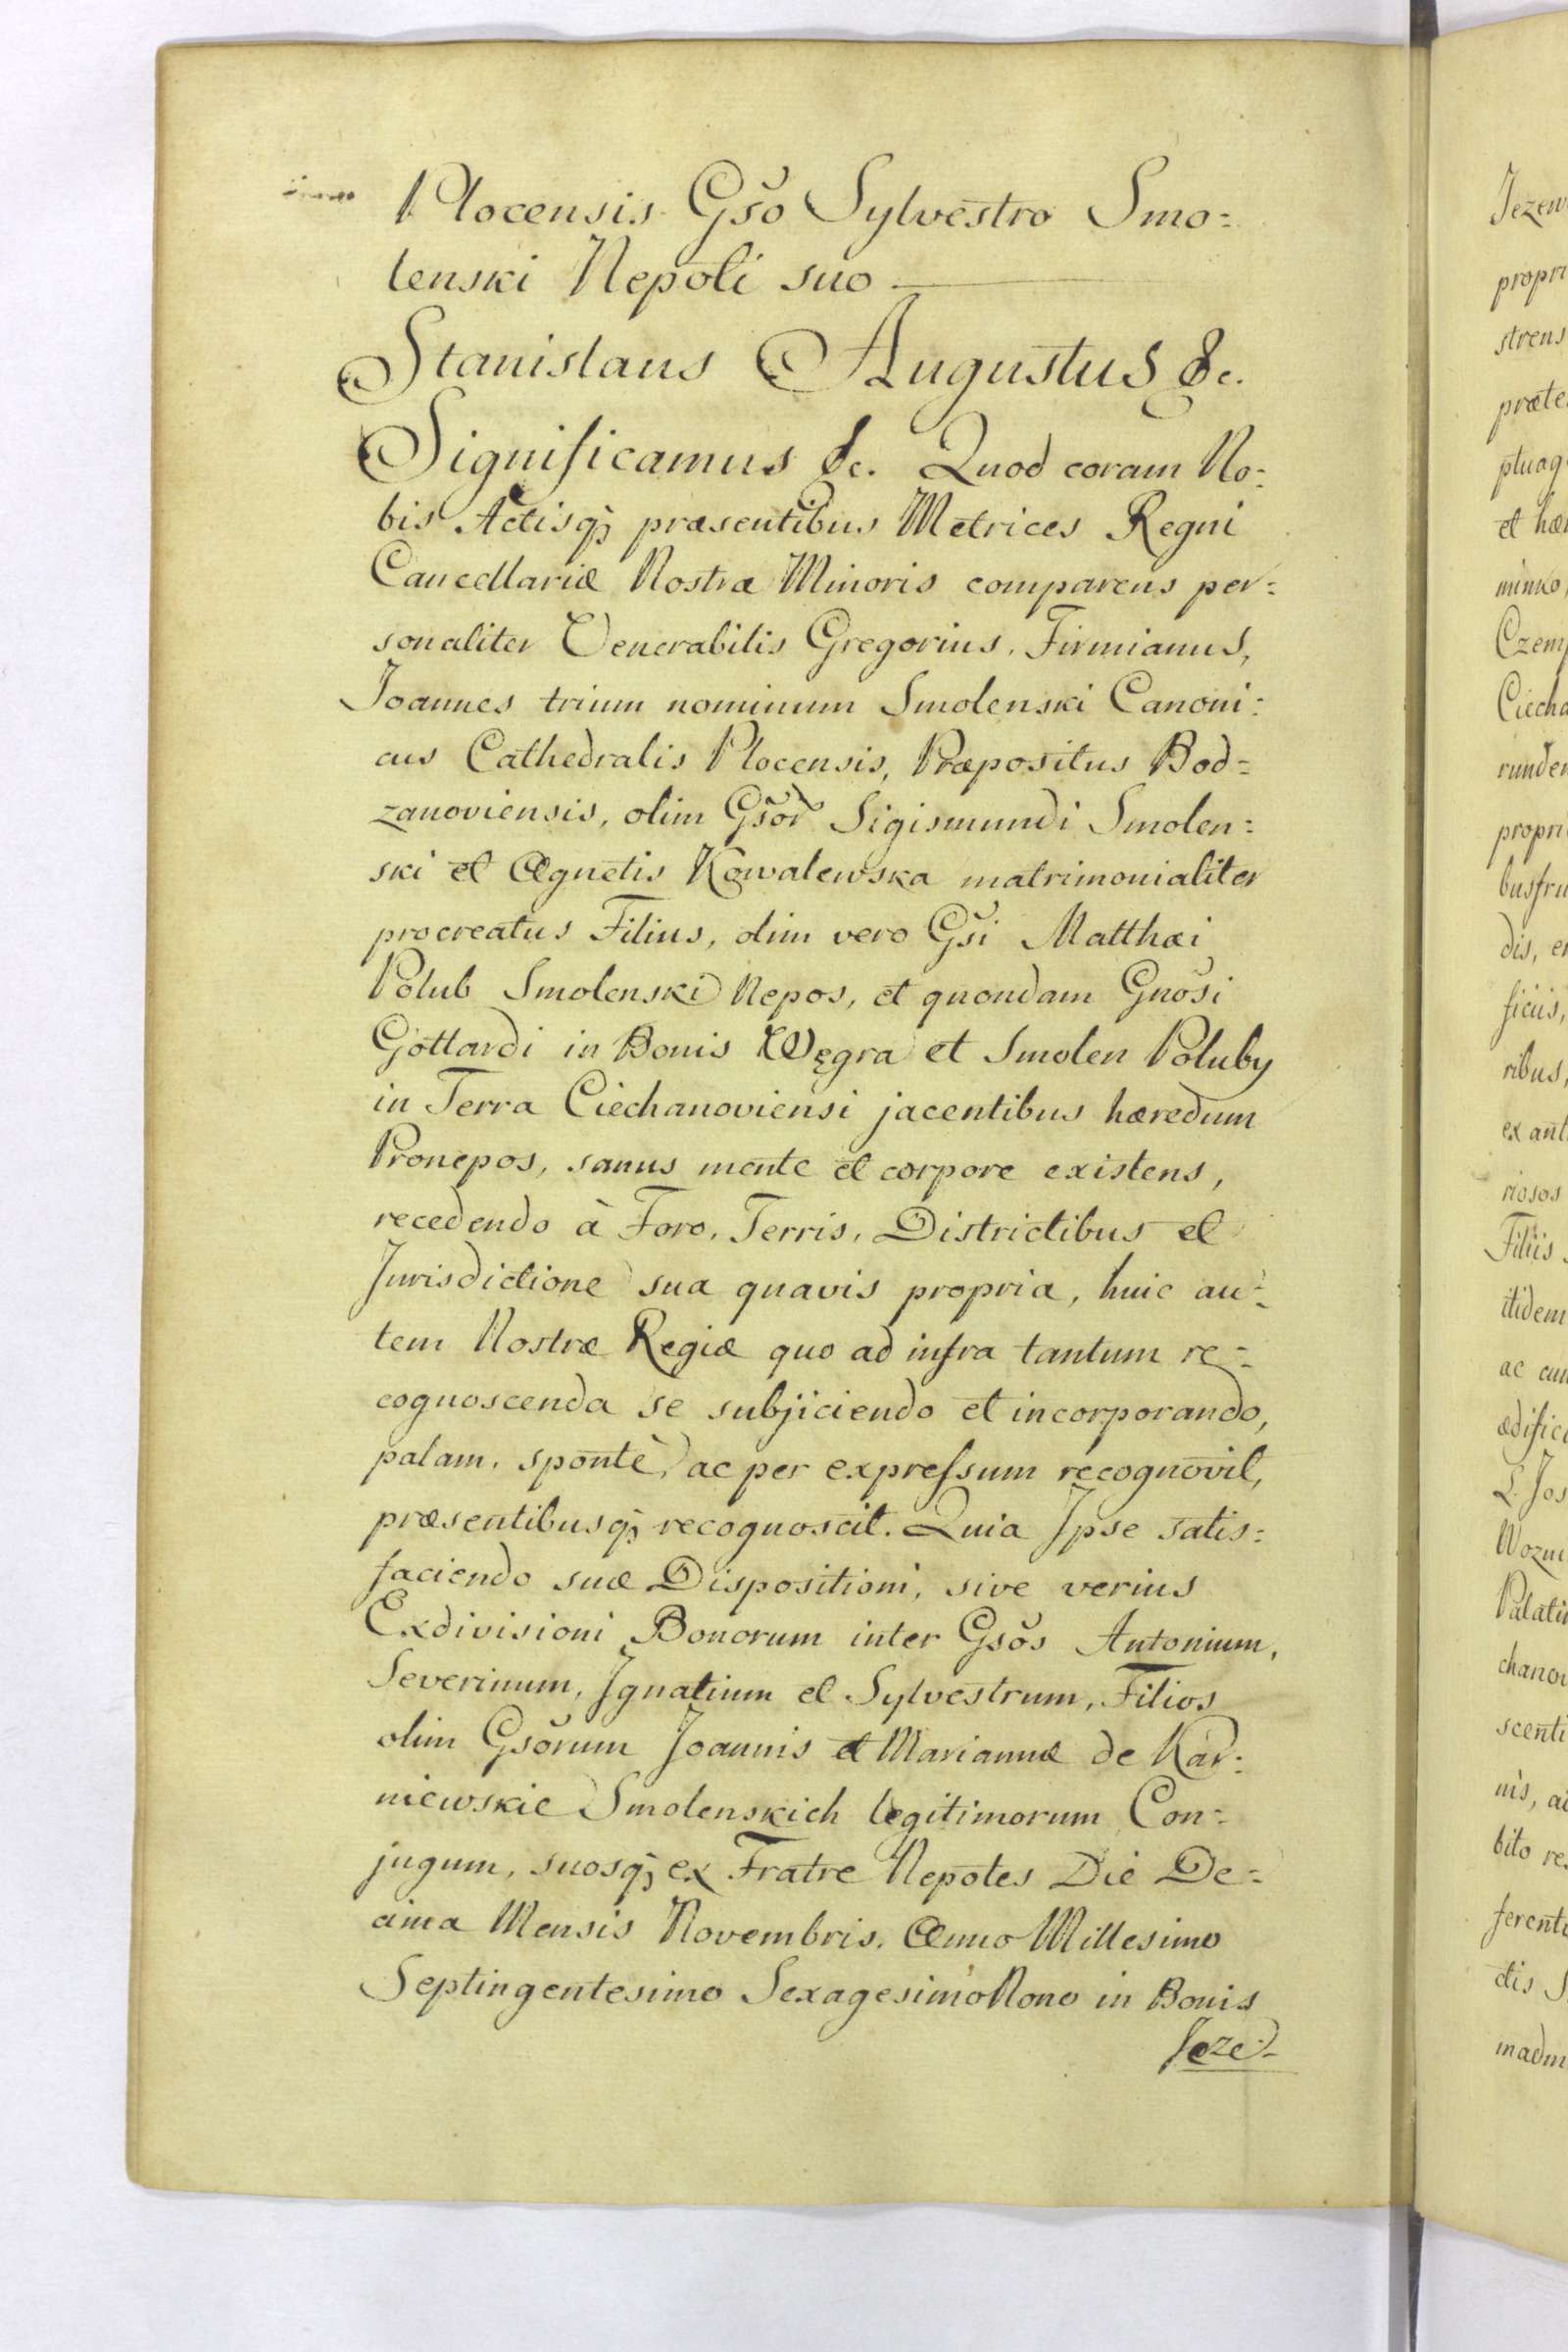 Plocensis Gšo Sylvestro Smo=
lenski Nepoti suo
Stanislaus Augustus &c.
Significamus &c. Quod coram No=
bis Actisq; præsentibus Metrices Regni
Cancellariæ Nostræ Minoris comparens per=
sonaliter Venerabilis Gregorius, Firmianus,
Joannes trium nominum Smolenski Canoni=
cus Cathedralis Plocensis, Præpositus Bod=
zanoviensis, olim Gšor Sigismundi Smolen=
ski et Agnetis Kowalewska matrimonialiter
procreatus Filius, olim vero Gši Matthæi
Polub Smolenski Nepos, et quondam Gnoši
Gottardi in Bonis Węgra et Smolen Poluby
in Terra Ciechanoviensi jacentibus hæredum
Pronepos, sanus mente et corpore existens,
recedendo à Foro, Terris, Districtibus et
Jurisdictione sua quavis propria, huic au=
tem Nostræ Regiæ quo ad infra tantum re=
cognoscenda se subjiciendo et incorporando,
palam, spontè, ac per expreſsum recognovit,
præsentibusq; recognoscit. Quia Ipse satis=
faciendo suæ Dispositioni, sive verius
Exdivisioni Bonorum inter Gsos̆ Antonium,
Severinum, Ignatium et Sylvestrum, Filios
olim Gsŏrum Joannis et Mariannæ de Kar=
niewskie Smolenskich legitimorum Con=
jugum, suosq; ex Fratre Nepotes Die De=
cima Mensis Novembris, Anno Millesimo
Septingentesimo Sexagesimo Nono in Bonis
Jeze=
Jezew
propri
strens
præte
ptuaq
et hær
minko,
Czem
Ciecha
runder
propri
busfru
dis, e
ficiis,
ribus,
ex ant
riosos
Filiis
itidem
ac cum
ædific
L. Jos
Wozni
Palati
chanov
scenti
nis, a
bito re
ferent
ctis S
madm